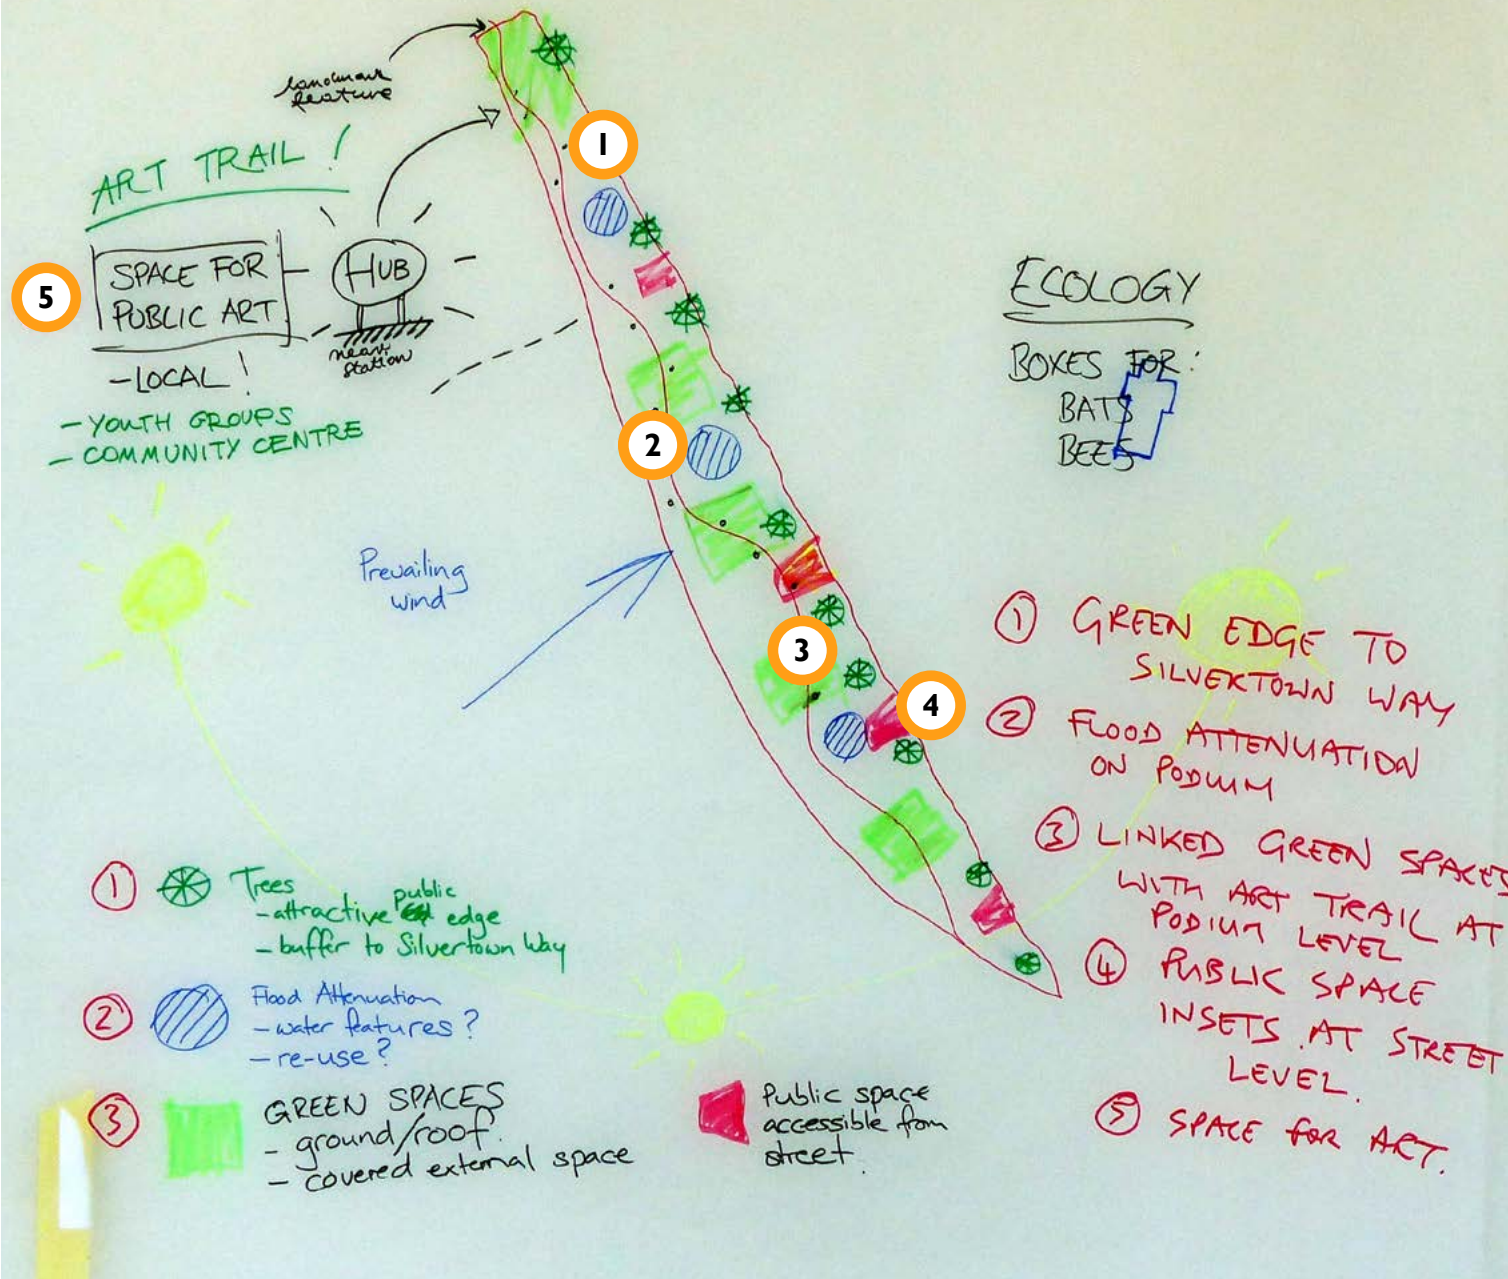 landmark
feature
ART TRAIL!
1
5
SPACE FOR
PUBLIC ART
HUB
near
station
- LOCAL!
- YOUTH GROUPS
- COMMUNITY CENTRE
ECOLOGY
BOXES FOR:
BATS
BEES
2
Prevailing
wind
3
4
① GREEN EDGE TO
SILVERTOWN WAY
② FLOOD ATTENUATION
ON PODIUM
③ LINKED GREEN SPACES
WITH ART TRAIL AT
PODIUM LEVEL
④ PUBLIC SPACE
INSETS AT STREET
LEVEL.
⑤ SPACE FOR ART.
① Trees
- attractive public edge
- buffer to Silvertown Way
② Flood Attenuation
- water features?
- re-use?
③ GREEN SPACES
- ground/roof.
- covered external space
Public space
accessible from
street.